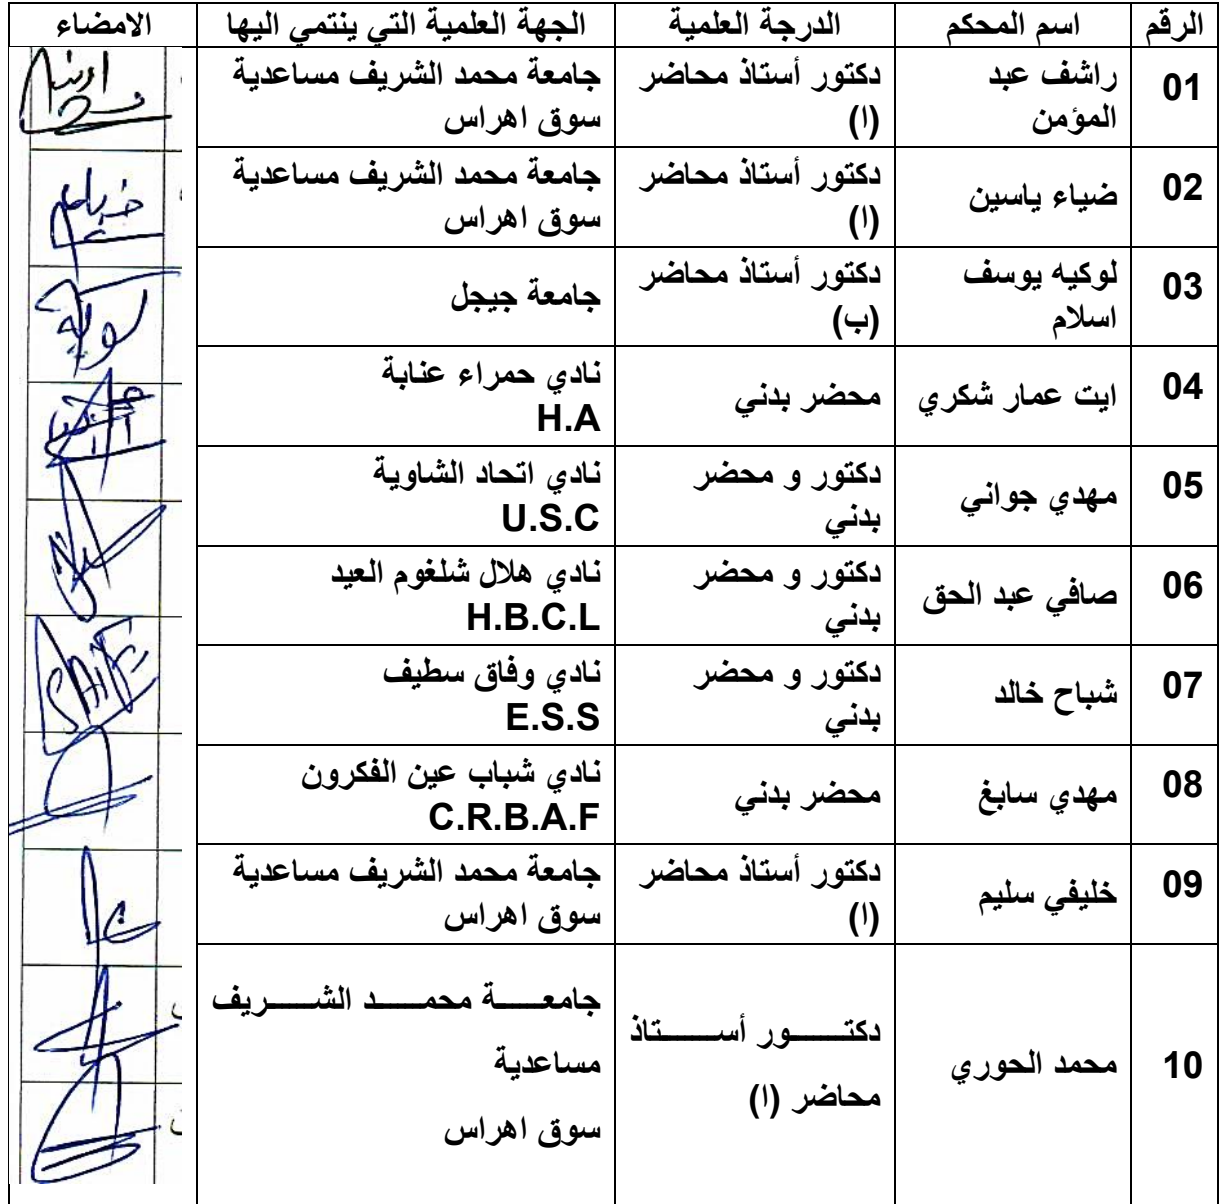 الرقم اسم المحكم الدرجة العلمية الجهة العلمية التي ينتمي اليها الامضاء
01 راشف عبد المؤمن دكتور أستاذ محاضر (ا) جامعة محمد الشريف مساعدية سوق اهراس
02 ضياء ياسين دكتور أستاذ محاضر (ا) جامعة محمد الشريف مساعدية سوق اهراس
03 لوكيه يوسف اسلام دكتور أستاذ محاضر (ب) جامعة جيجل
04 ايت عمار شكري محضر بدني نادي حمراء عنابة H.A
05 مهدي جواني دكتور و محضر بدني نادي اتحاد الشاوية U.S.C
06 صافي عبد الحق دكتور و محضر بدني نادي هلال شلغوم العيد H.B.C.L
07 شباح خالد دكتور و محضر بدني نادي وفاق سطيف E.S.S
08 مهدي سابغ محضر بدني نادي شباب عين الفكرون C.R.B.A.F
09 خليفي سليم دكتور أستاذ محاضر (ا) جامعة محمد الشريف مساعدية سوق اهراس
10 محمد الحوري دكتـــــور أســــــتاذ محاضر (ا) جامعـــــة محمــــــد الشــــــريف مساعدية سوق اهراس